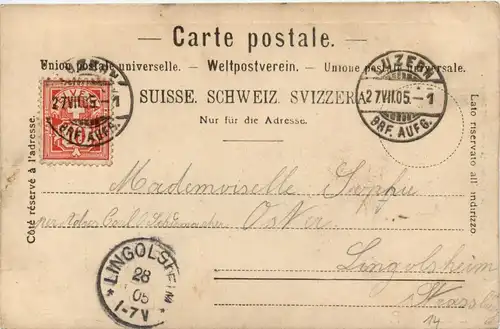 Carte postale.
Union postale universelle. - Weltpostverein. - Unione postale universale.
SUISSE. SCHWEIZ. SVIZZERA
Nur für die Adresse.
Côté réservé à l'adresse.
Lato riservato all indirizzo
LUZERN
27 VII. 05. - 1
BRF. AUFG.
LUZERN
27 VII. 05. - 1
BRF. AUFG.
Mademoiselle Sophie
Oster
Lingolsheim
LINGOLSHEIM
28
05
1-7V